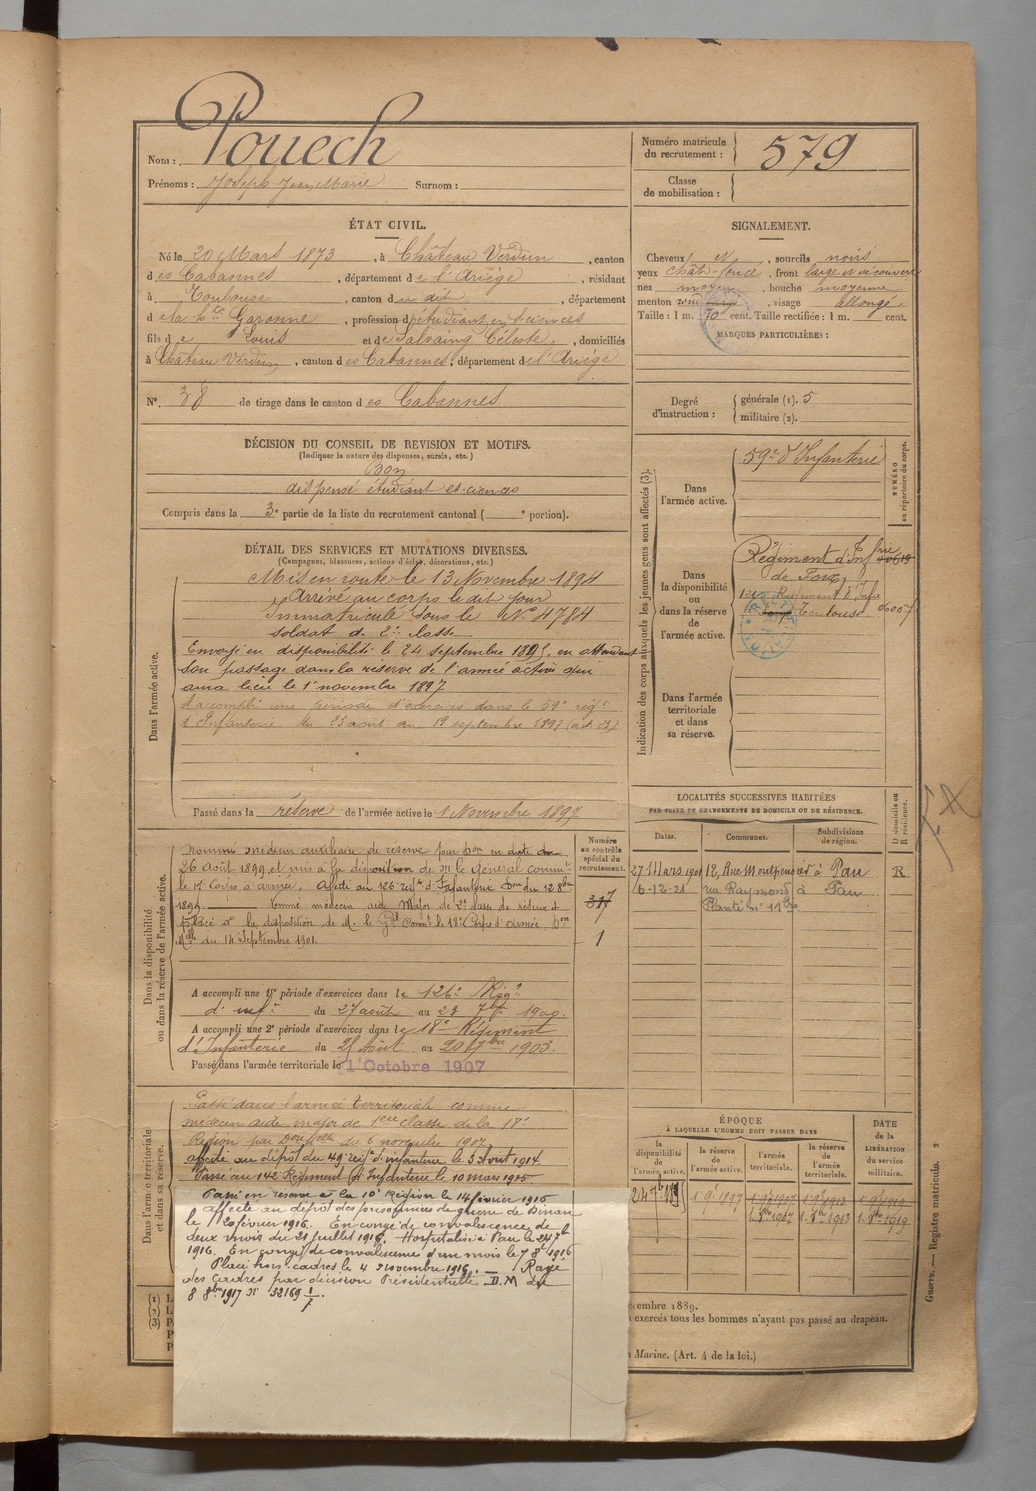 Nom : Pouech
Prénoms : Joseph Jean Marie Surnom :
Numéro matricule du recrutement : 579
Classe de mobilisation :
ÉTAT CIVIL.
Né le 20 Mars 1873, à Château Verdun, canton
des Cabannes, département de l'Ariège, résidant
à Toulouse, canton du dit, département
de la Hte Garonne, profession d'étudiant en sciences
fils de Louis et de Salvaing Céleste, domiciliés
à Château Verdun, canton des Cabannes, département de l'Ariège
N° 38 de tirage dans le canton des Cabannes
SIGNALEMENT.
Cheveux N, sourcils noirs
yeux chât-foncé, front large et découvert
nez moyen, bouche moyenne
menton rond, visage allongé.
Taille : 1 m. 70 cent. Taille rectifiée : 1 m. cent.
MARQUES PARTICULIÈRES :
Degré d'instruction : générale (1). 5
militaire (2).
DÉCISION DU CONSEIL DE REVISION ET MOTIFS.
(Indiquer la nature des dispenses, sursis, etc.)
Bon
dispensé étudiant ès-sciences
Compris dans la 3e partie de la liste du recrutement cantonal ( e portion).
DÉTAIL DES SERVICES ET MUTATIONS DIVERSES.
(Campagnes, blessures, actions d'éclat, décorations, etc.)
Dans l'armée active.
Mis en route le 13 Novembre 1894
Arrivé au corps le dit jour
Immatriculé sous le N° 4784
soldat de 2e classe
Envoyé en disponibilité le 24 septembre 1895, en attendant
son passage dans la réserve de l'armée active qui
aura lieu le 1er novembre 1897
A accompli une période d'exercices dans le 59e régt
d'Infanterie du 23 août au 19 septembre 1897
Passé dans la réserve de l'armée active le 1 Novembre 1897
Indication des corps auxquels les jeunes gens sont affectés (3).
NUMÉRO au répertoire du corps.
Dans l'armée active.
59e d'Infanterie
Dans la disponibilité ou dans la réserve de l'armée active.
Régiment d'Infrie
de Foix
Régiment d'Infie
Toulouse 06007
Dans l'armée territoriale et dans sa réserve.
LOCALITÉS SUCCESSIVES HABITÉES
PAR SUITE DE CHANGEMENTS DE DOMICILE OU DE RÉSIDENCE.
Dates. Communes. Subdivisions de région. D domicile ou R résidence.
27 Mars 1901 12, Rue Montpensier à Pau R
6-12-21 rue Raymond à Pau
Planté n° 11
Dans la disponibilité ou dans la réserve de l'armée active.
Numéro au contrôle spécial du recrutement.
317
1
Nommé médecin auxiliaire de réserve par Don en date du
26 Août 1899 et mis à la disposition de Mr le Général commt
le 17e Corps d'armée. Affecté au 126e régt d'Infanterie Don du 12 8bre
1899. Nommé médecin aide Major de 2e classe de réserve et
placé à la disposition de M. le Gal Commt le 18e Corps d'Armée. Don
Mlle du 14 Septembre 1901.
A accompli une 1re période d'exercices dans le 126e Régt
d'infie du 27 août au 23 7bre 1900.
A accompli une 2e période d'exercices dans le 18e Régiment
d'Infanterie du 25 Août au 20 7bre 1903.
Passé dans l'armée territoriale le 1er Octobre 1907
Dans l'armée territoriale et dans sa réserve.
Passé dans l'armée territoriale comme
médecin aide major de 1ere classe de la 17e
Région par Don Mlle du 6 novembre 1907.
affecté au dépôt du 49e régt d'infanterie le 3 Août 1914
Passé au 142 Régiment d'Infanterie le 10 mars 1915
Passé en réserve à la 10e Région le 14 février 1916
Affecté au dépôt des prisonniers de guerre de Dinan
le 20 février 1916. En congé de convalescence de
deux mois du 21 juillet 1916. Hospitalisé à Pau le 24 7b
1916. En congé de convalescence d'un mois le 7 8b 1916
Placé hors cadres le 4 novembre 1916. — Rayé
des cadres par décision Présidentielle D.M du
8 8bre 1917 N° 52169 1/7.
ÉPOQUE
À LAQUELLE L'HOMME DOIT PASSER DANS
la disponibilité de l'armée active. la réserve de l'armée active. l'armée territoriale. la réserve de l'armée territoriale. DATE de la LIBÉRATION du service militaire.
24 7b 1895 1 9b 1897 1 9b 1907 1 9b 1913 1 9b 1919
1. 8bre 1907 1. 8bre 1913 1. 8bre 1919
(1) L
(2) L
(3) P
P
P
décembre 1889.
exercés tous les hommes n'ayant pas passé au drapeau.
Marine. (Art. 4 de la loi.)
Guerre. — Registre matricule. 2